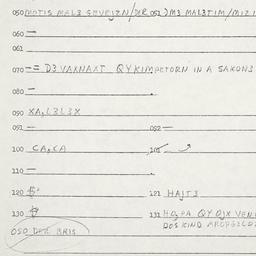 050 MOTIS MAL3 GEVEJZN/DER 051 )M3 MAL3TIM/MIZI
060 —
061
070 — = D3 VAXNAXT QYKIMPETORN IN A SAKONS
080 —
090 XA,L3L3X
091 — 092 —
100 CA,CA 101
110 —
120 121 HAJT3
130 131 HO,PA QY QJX VEN
DOS KIND
050 DER BRIS